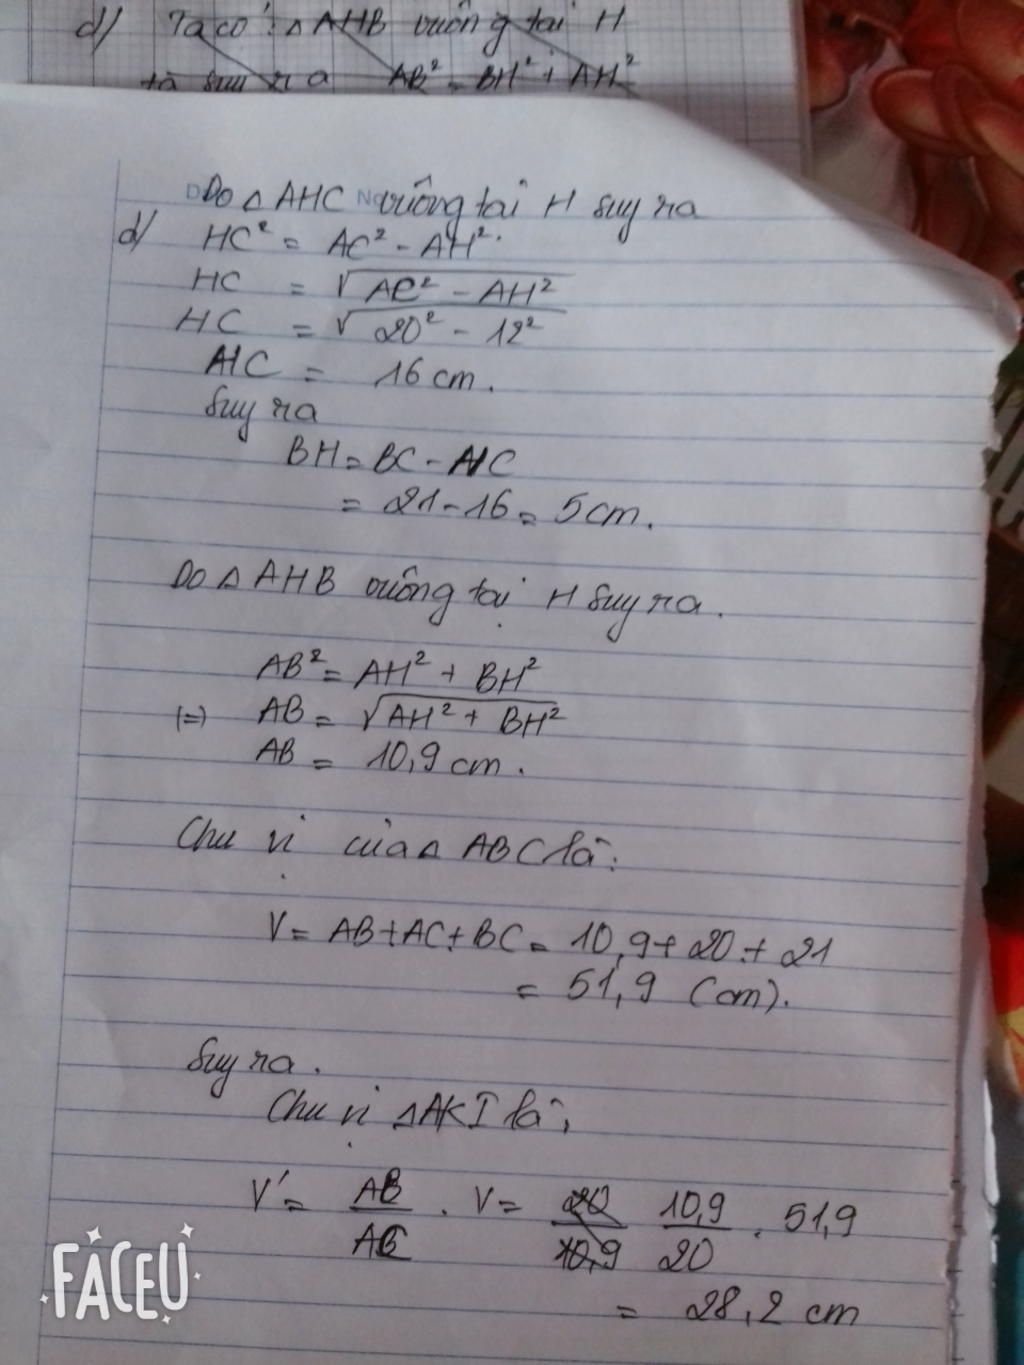 d) Ta có: △AHB vuông tại H
ta suy ra AB² = BH² + AH²
Do △AHC vuông tại H suy ra
d) HC² = AC² - AH².
HC = √AC² - AH²
HC = √20² - 12²
HC = 16 cm.
Suy ra
BH = BC - HC
= 21 - 16 = 5 cm.
Do △AHB vuông tại H suy ra.
AB² = AH² + BH²
(=) AB = √AH² + BH²
AB = 10,9 cm.
Chu vi của △ABC là:
V = AB + AC + BC = 10,9 + 20 + 21
= 51,9 (cm).
Suy ra.
Chu vi △AKI là,
V' = AB/AC . V = 20/10,9 10,9/20 . 51,9
= 28,2 cm
FACEU